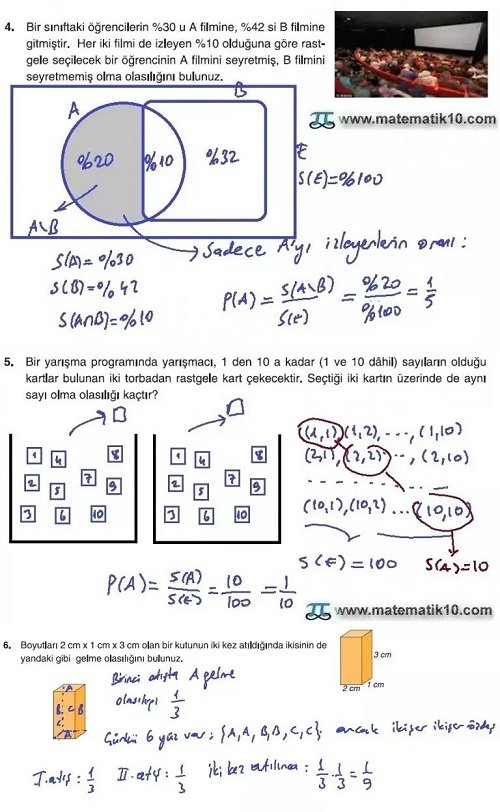 4. Bir sınıftaki öğrencilerin %30 u A filmine, %42 si B filmine
gitmiştir. Her iki filmi de izleyen %10 olduğuna göre rast-
gele seçilecek bir öğrencinin A filmini seyretmiş, B filmini
seyretmemiş olma olasılığını bulunuz.
www.matematik10.com
A
B
%20 %10 %32
E
S(E)=%100
A\B
Sadece A'yı izleyenlerin oranı:
S(A)=%30
S(B)=%42
S(A∩B)=%10
P(A) = S(A\B)/S(E) = %20/%100 = 1/5
5. Bir yarışma programında yarışmacı, 1 den 10 a kadar (1 ve 10 dâhil) sayıların olduğu
kartlar bulunan iki torbadan rastgele kart çekecektir. Seçtiği iki kartın üzerinde de aynı
sayı olma olasılığı kaçtır?
1 4 8
2 5 7 9
3 6 10
1 4 8
2 5 7 9
3 6 10
(1,1),(1,2), ---, (1,10)
(2,1), (2,2), ---, (2,10)
(10,1),(10,2) ... (10,10)
S(E)=100 S(A)=10
P(A)= S(A)/S(E) = 10/100 = 1/10
www.matematik10.com
6. Boyutları 2 cm x 1 cm x 3 cm olan bir kutunun iki kez atıldığında ikisinin de
yandaki gibi gelme olasılığını bulunuz.
3 cm
2 cm 1 cm
Birinci atışta A gelme
olasılığı 1/3
A
B C B
C
A
Çünkü 6 yüz var: {A,A,B,B,C,C} ancak ikişer ikişer özdeş
I.atış: 1/3 II.atış: 1/3 iki kez atılınca: 1/3 . 1/3 = 1/9